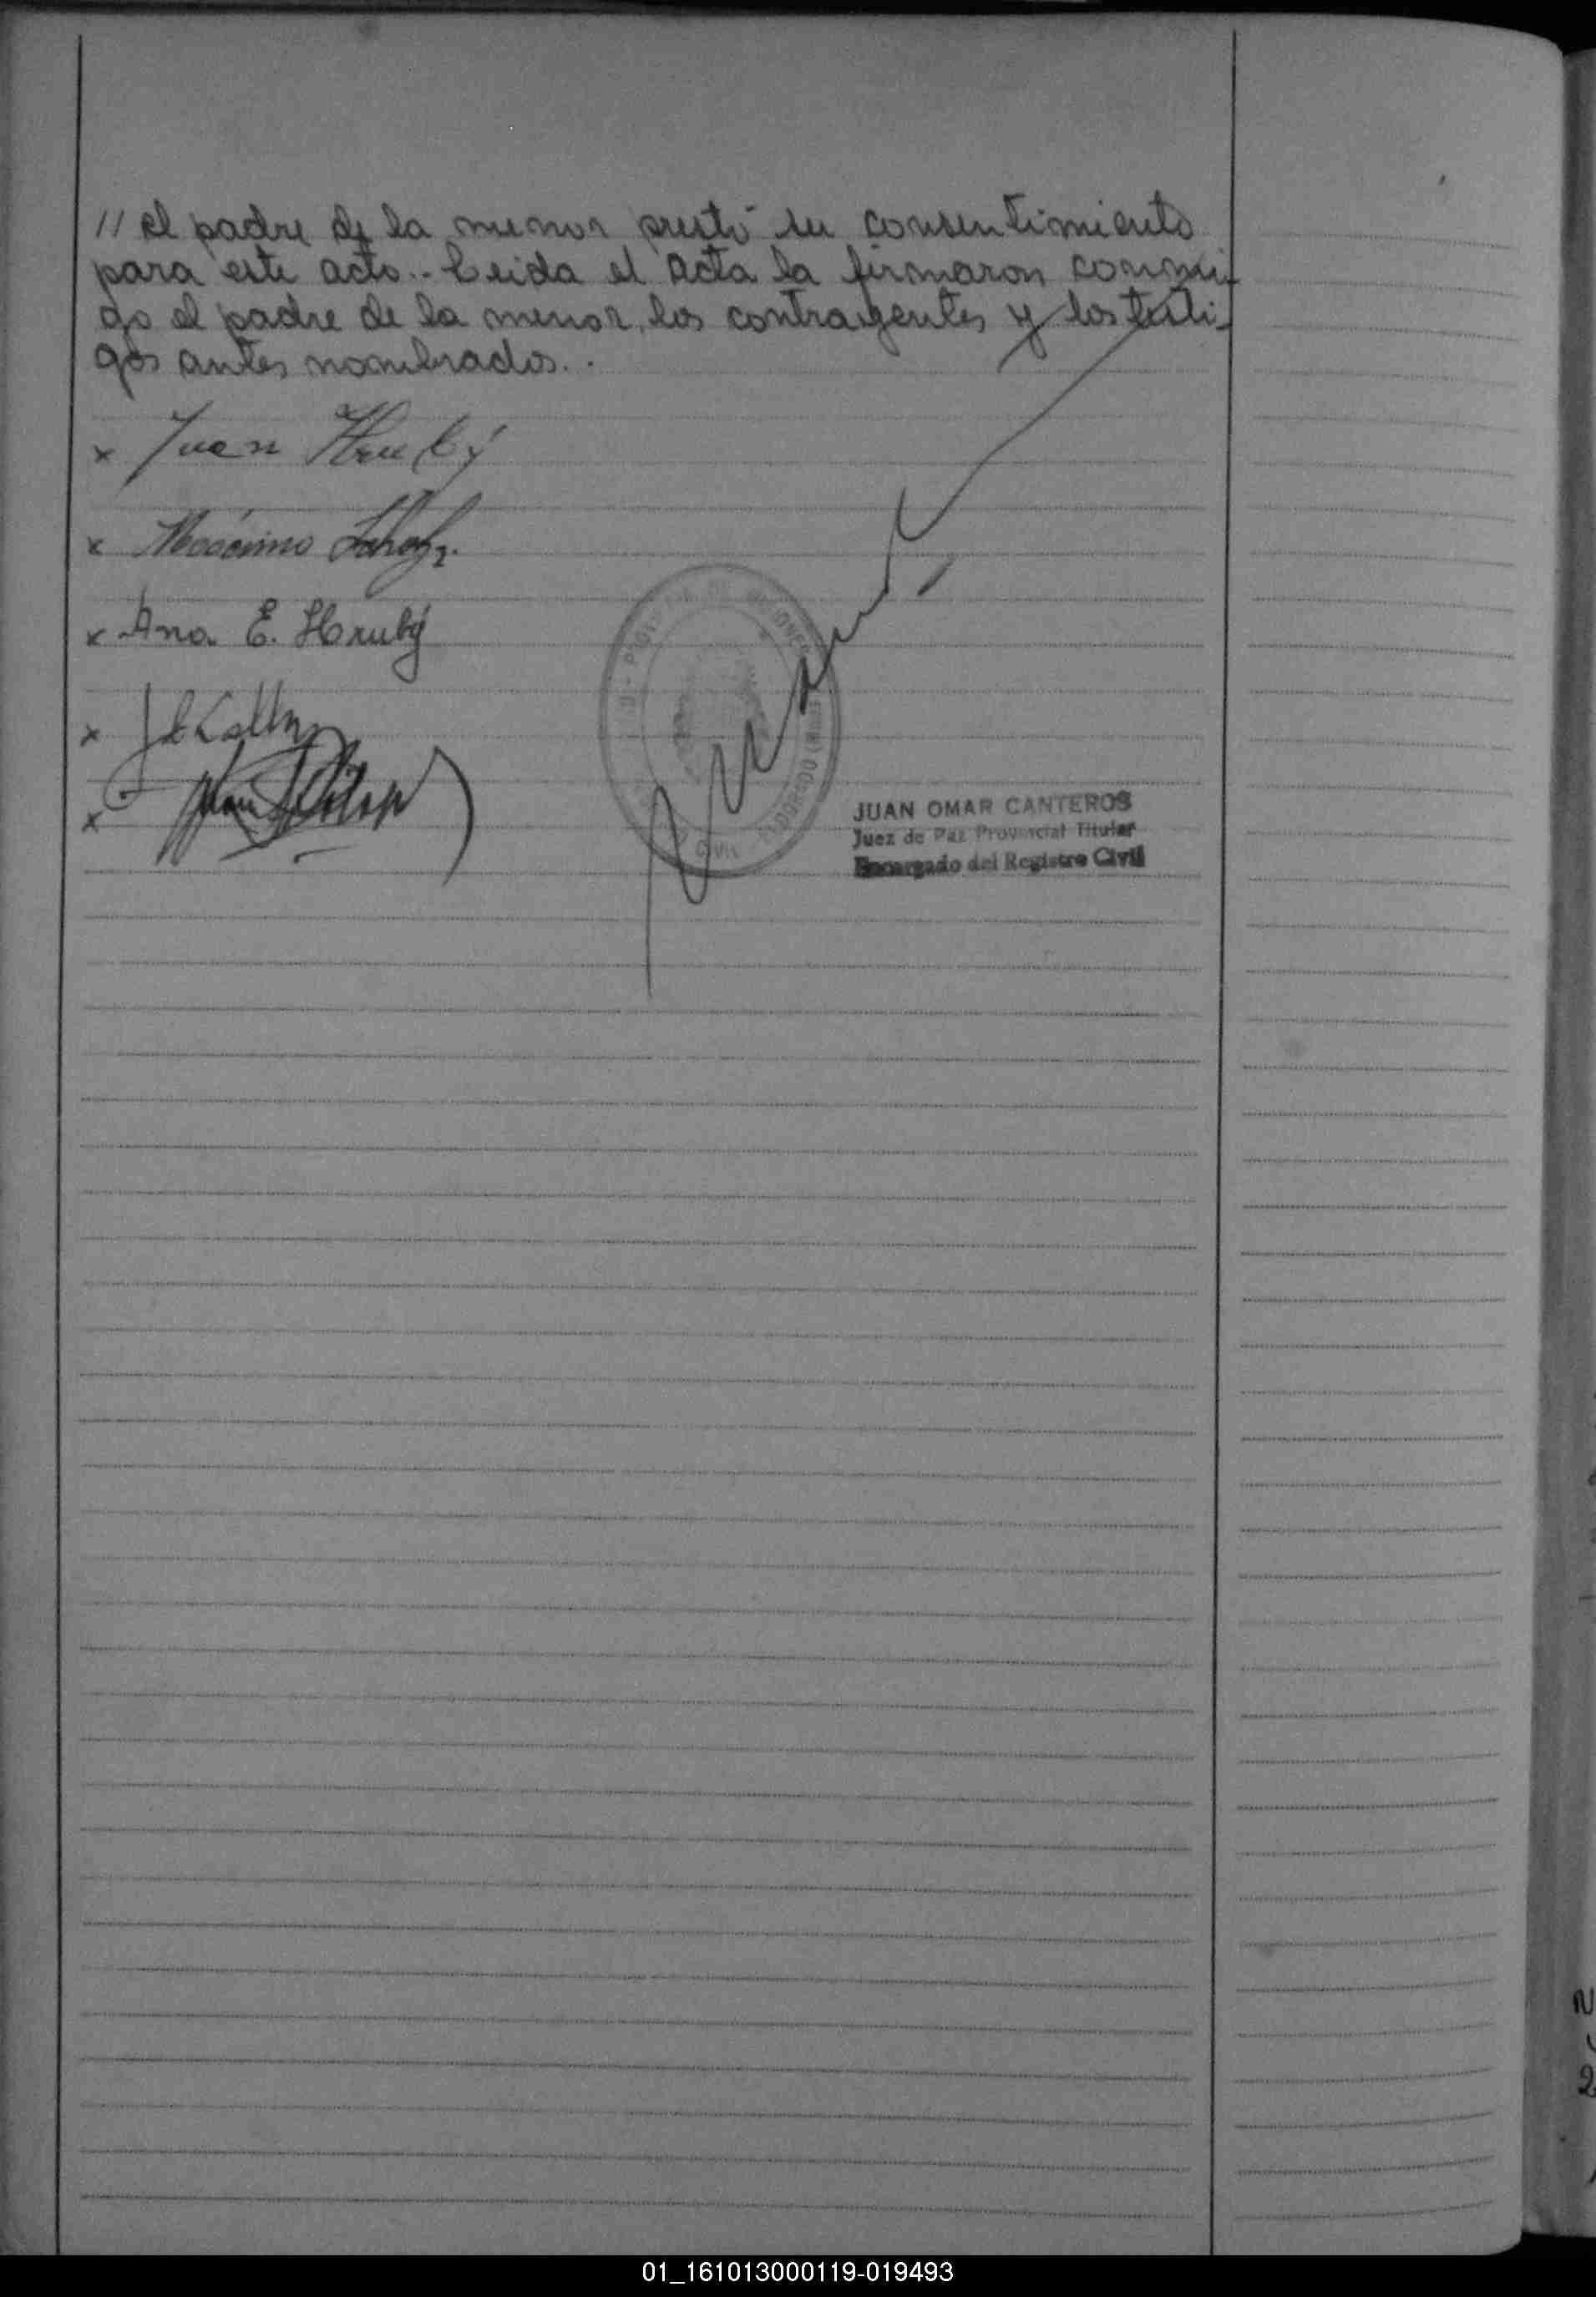 // el padre de la menor prestó su consentimiento
para este acto.- Leida el acta la firmaron conmi-
go el padre de la menor, los contrayentes y los testi-
gos antes nombrados.-
x Juan Hrubý
x Máximo
x Ana E. Hrubý
x
x
JUAN OMAR CANTEROS
Juez de Paz Provincial Titular
Encargado del Registro Civil
01_161013000119-019493